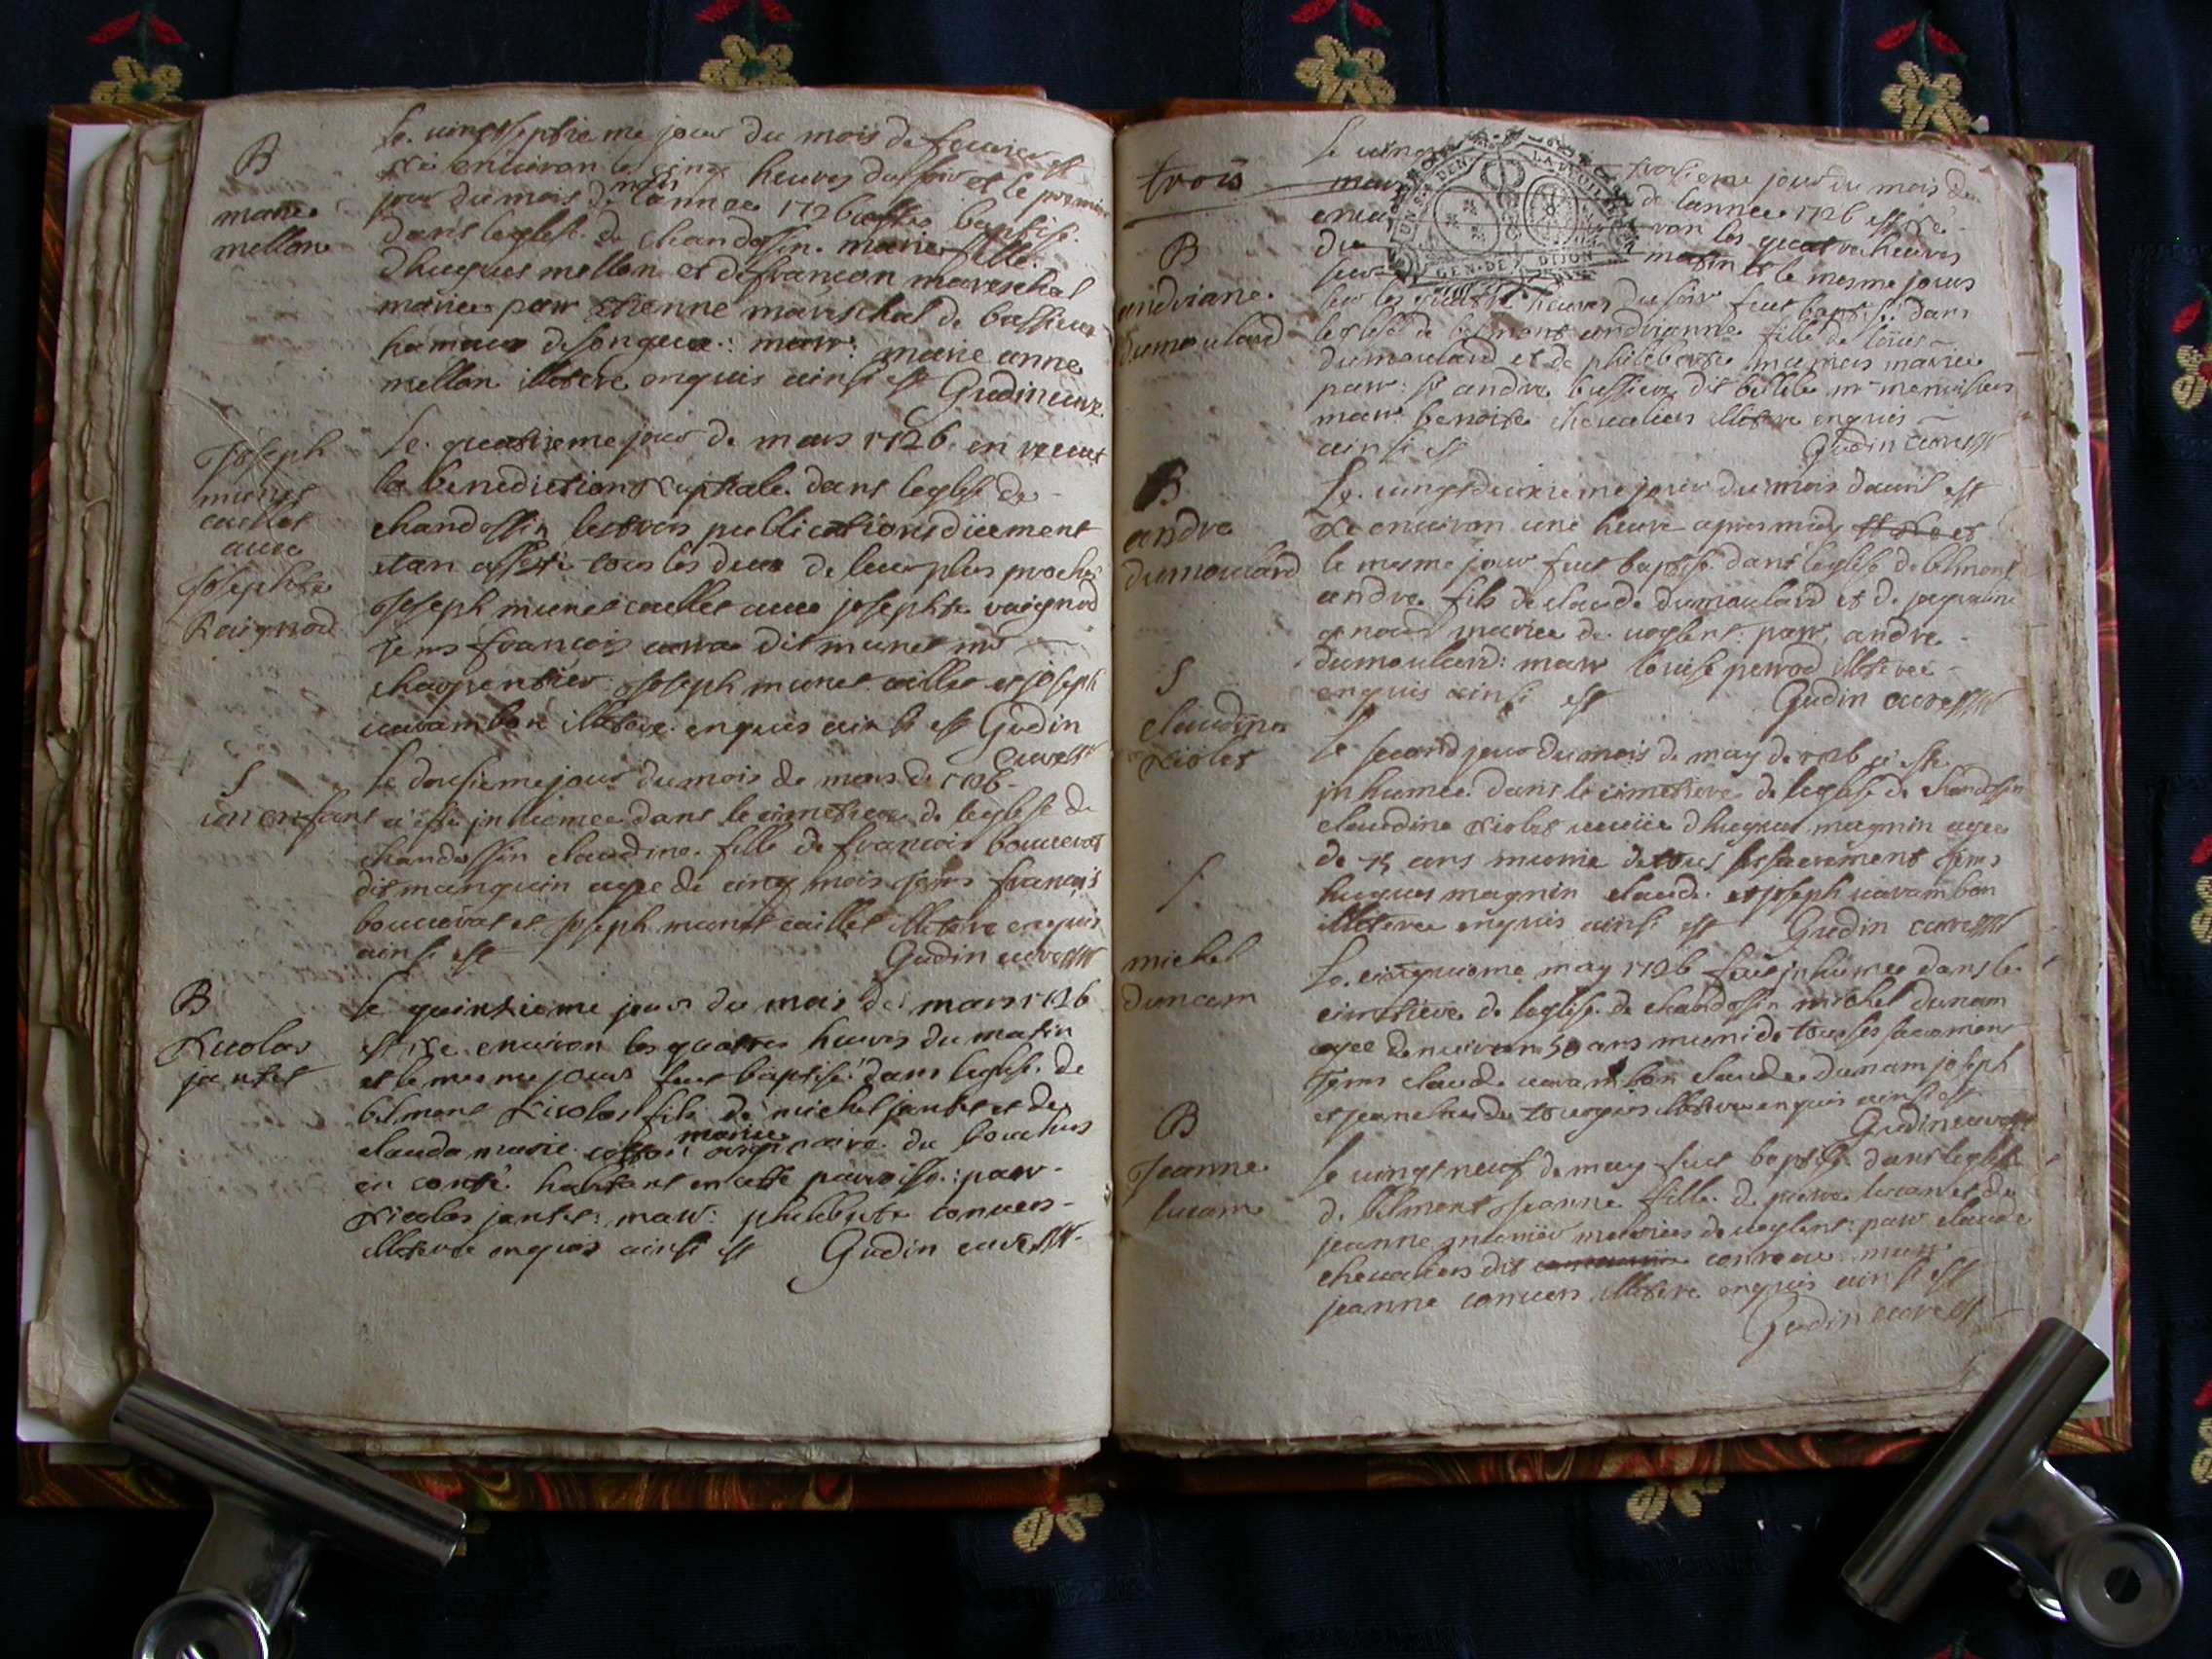 B
marie
mellon
Le vingtseptieme jour du mois de feuvrier est
né environ les cinq heures du soir et le premier
jour du mois de mars
lannee 1726 baptisé
dans leglise de chandossin marie fille
dhugues mellon et de francon mareschal
mariee parr etienne mareschal de bassieux
hameau de songeux : marr : marie anne
mellon illeteré enquis ainsi est Gudin cure
Joseph
munet
caillet
avec
Josephte
Raignod
Le quatrieme jour de mars 1726 on receut
la benediction nuptiale dans leglise de
chandossin les trois publications düement
tous les deux de leur plus proches
Joseph munet caillet avec josephte raignod
tems francois dit munet md
charpentier Joseph munet caillet et joseph
uarambon illeteré enquis ainsi est Gudin
Cure
S
un enfant
Le dousieme jour du mois de mars de 1726
a esté inhumee dans le cimetiere de leglise de
chandossin claudine fille de francois bouuerat
dit manguin agee de cinq mois tems francois
bouuerat et joseph munet caillet illeteré enquis
ainsi est Gudin cure
B
Nicolas
jantet
le quinsieme jour du mois de mars 1726
est né environ les quatre heures du matin
et le mesme jour fut baptisé dans leglise de
belmont Nicolas fils de michel jantet et de
clauda marie
mariee
du
en conté habitant en cette parroisse : parr
Nicolas jantet : marr : philiberte conuers
illeteré enquis ainsi est Gudin cure
trois
Le ving troisieme jour du mois de
mars de lannee 1726 est né
environ les quatre heures
du matin et le mesme jour
sur
les heures du soir fut baptisé dans
leglise de belmont andrianne fille de loüis
dumoulard et de philiberte mariee
parr : sr andre bussieux dit mr menuisier
marr benoite cheualier illeteré enquis
ainsi est Gudin cure
GEN. DE DIJON
B
andriane
dumoulard
B
andre
dumoulard
Le vingtdeuxieme jour du mois dauril est
né environ une heure apres midy
le mesme jour fut baptisé dans leglise de belmont
andre fils de claude dumoulard et de
mariee de uoglent : parr andre
dumoulard : marr louise perrod illeteré
enquis ainsi est Gudin cure
S
claudine
Niolet
Le second jour du mois de may de 1726 a esté
inhumee dans le cimetiere de leglise de chandossin
claudine niolet ueuüe dhugues magnin agee
de 75 ans munie de tous ses sacrement tems
hugues magnin claude et joseph uarambon
illeteree enquis ainsi est Gudin cure
S
michel
dunam
Le cinquieme may 1726 fut inhumee dans le
cimetiere de leglise de chandossin michel dunam
agee denuiron 50 ans muni de tous ses sacrement
tems claude uarambon claude dunam joseph
et jean illeteré enquis ainsi est
Gudin cure
B
Jeanne
lucam
le vingt neuf de may fut baptisé dans leglise
de belmont Jeanne fille de pierre lucam et de
jeanne mariees de uoglent : parr claude
cheualier dit marr
jeanne conuers illeteré enquis ainsi est
Gudin cure